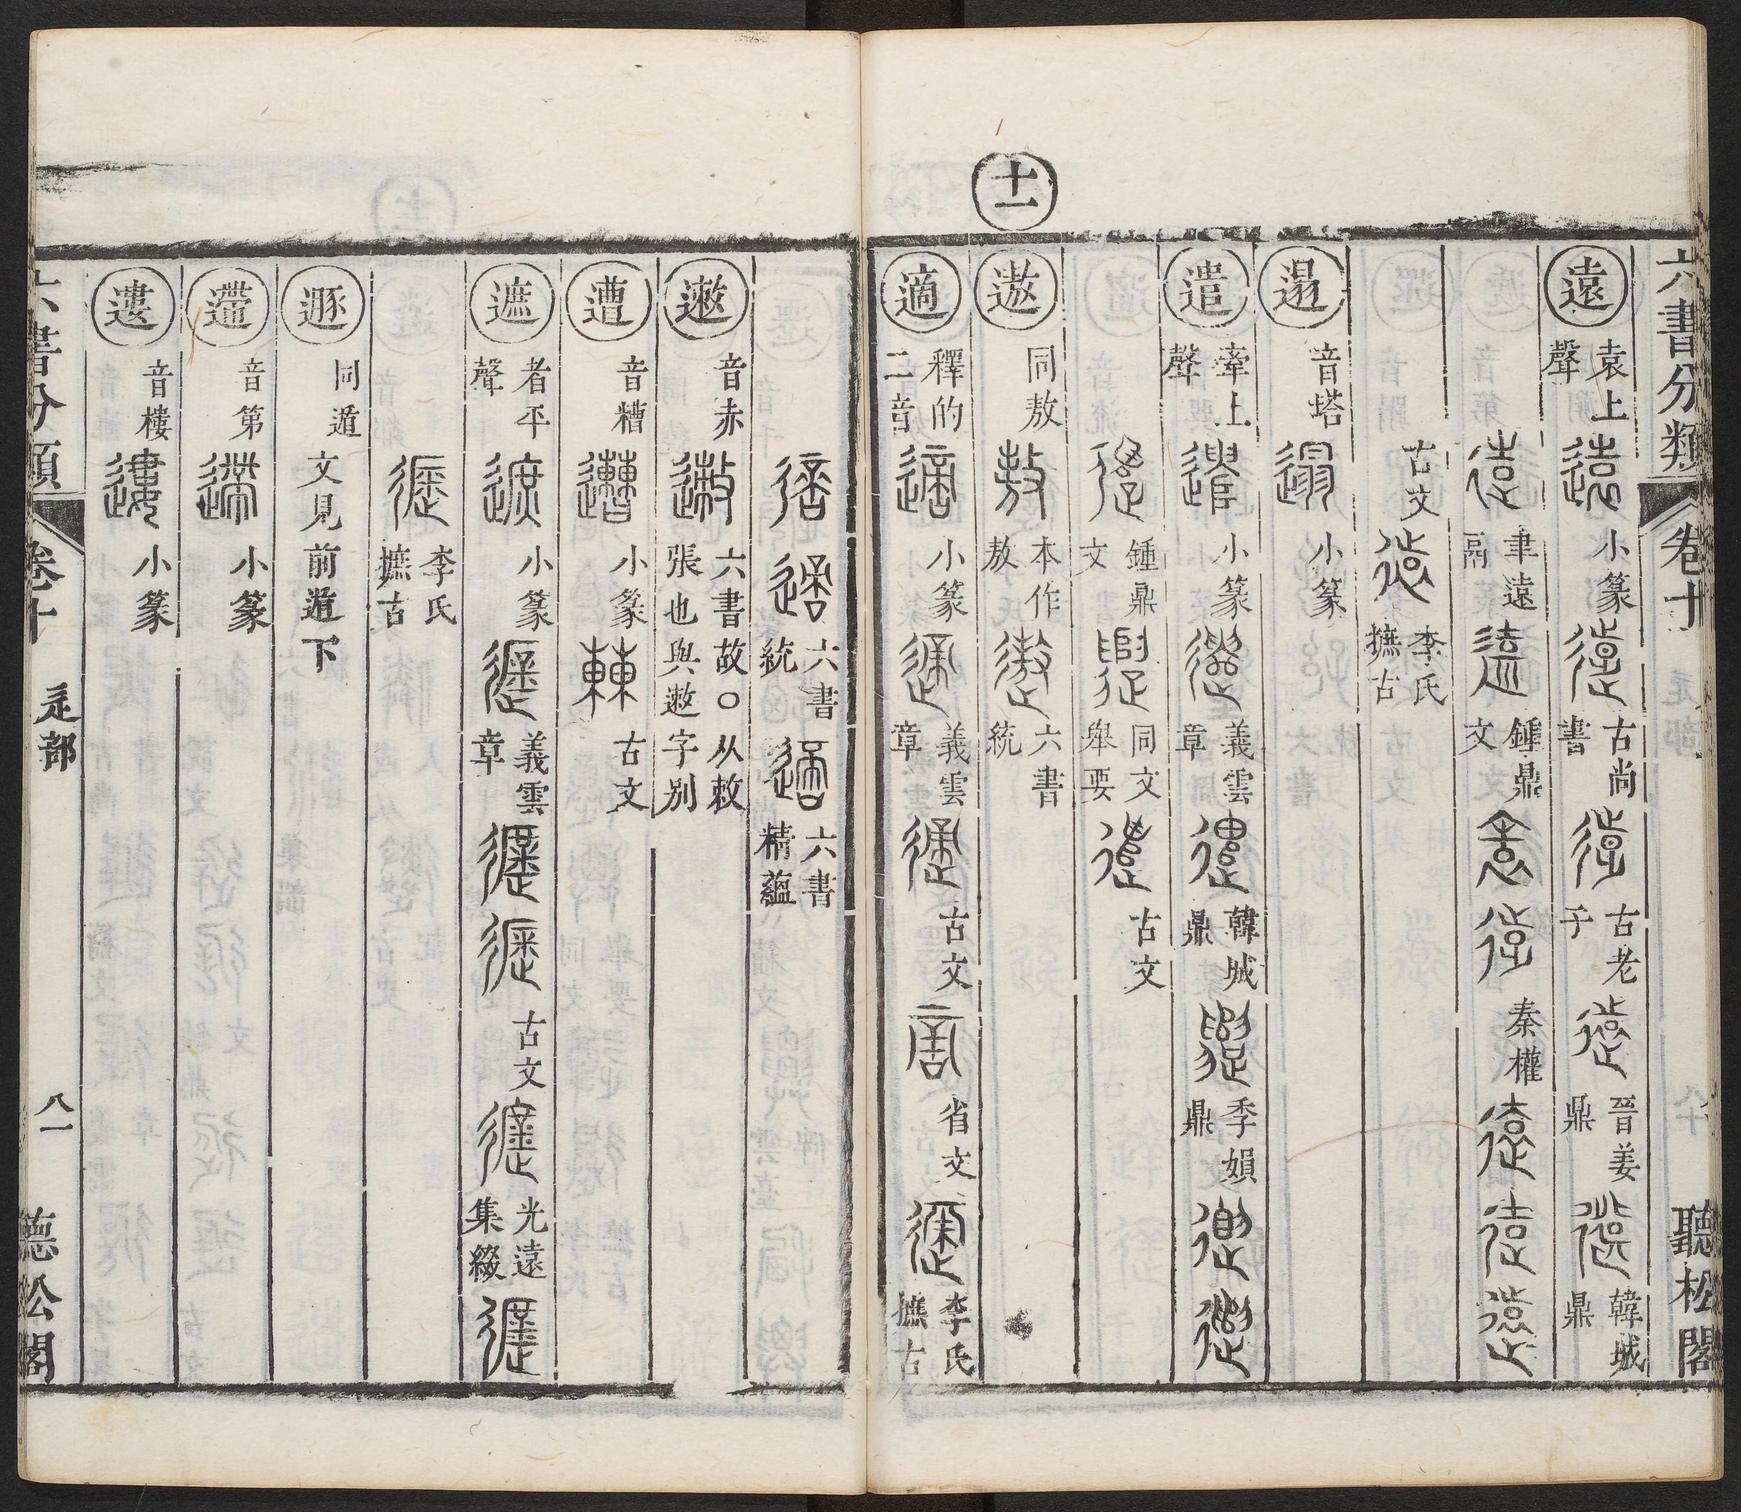 六書分類 卷十 辵部 聽松閣
遠 袁上聲 小篆 古尚書 古老子 晉姜鼎 韓城鼎
聿遠鬲 鍾鼎文 秦權
古文 李氏摭古
遢 音塔 小篆
遣 牽上聲 小篆 義雲章 韓城鼎 季娟鼎
鍾鼎文 同文舉要 古文
十一
遨 同敖 本作敖 六書統
適 釋的二音 小篆 義雲章 古文 省文 李氏摭古
六書統 六書精蘊
遫 音赤 六書故〇从敕張也與遬字別
遭 音糟 小篆 古文
遮 者平聲 小篆 義雲章 古文 光遠集綴
李氏摭古
遯 同遁 文見前遁下
遰 音第 小篆
遱 音樓 小篆
六書分類 卷十 辵部 八一 聽松閣